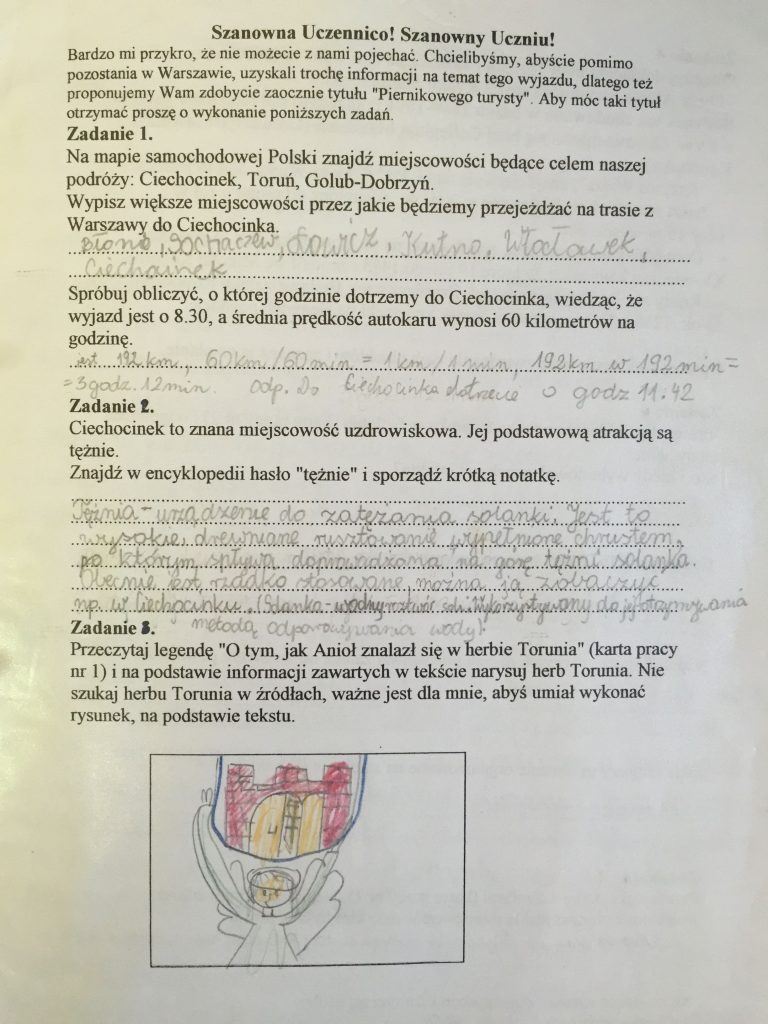 Szanowna Uczennico! Szanowny Uczniu!
Bardzo mi przykro, że nie możecie z nami pojechać. Chcielibyśmy, abyście pomimo
pozostania w Warszawie, uzyskali trochę informacji na temat tego wyjazdu, dlatego też
proponujemy Wam zdobycie zaocznie tytułu "Piernikowego turysty". Aby móc taki tytuł
otrzymać proszę o wykonanie poniższych zadań.
Zadanie 1.
Na mapie samochodowej Polski znajdź miejscowości będące celem naszej
podróży: Ciechocinek, Toruń, Golub-Dobrzyń.
Wypisz większe miejscowości przez jakie będziemy przejeżdżać na trasie z
Warszawy do Ciechocinka.
Błonie, Sochaczew, Łowicz, Kutno, Włocławek,
Ciechocinek
Spróbuj obliczyć, o której godzinie dotrzemy do Ciechocinka, wiedząc, że
wyjazd jest o 8.30, a średnia prędkość autokaru wynosi 60 kilometrów na
godzinę.
jest 192 km, 60km/60min = 1km/1min, 192km w 192min =
= 3godz. 12min. odp. Do Ciechocinka dotrzecie o godz 11.42
Zadanie 2.
Ciechocinek to znana miejscowość uzdrowiskowa. Jej podstawową atrakcją są
tężnie.
Znajdź w encyklopedii hasło "tężnie" i sporządź krótką notatkę.
Tężnia - urządzenie do zatężania solanki. Jest to
wysokie, drewniane rusztowanie wypełnione chrustem,
po którym spływa doprowadzona na górę tężni solanka.
Obecnie jest rzadko stosowane, można ją zobaczyć
np. w Ciechocinku. (Solanka - wodny roztwór soli. Wykorzystywany do jej otrzymywania
metodą odparowywania wody).
Zadanie 3.
Przeczytaj legendę "O tym, jak Anioł znalazł się w herbie Torunia" (karta pracy
nr 1) i na podstawie informacji zawartych w tekście narysuj herb Torunia. Nie
szukaj herbu Torunia w źródłach, ważne jest dla mnie, abyś umiał wykonać
rysunek, na podstawie tekstu.